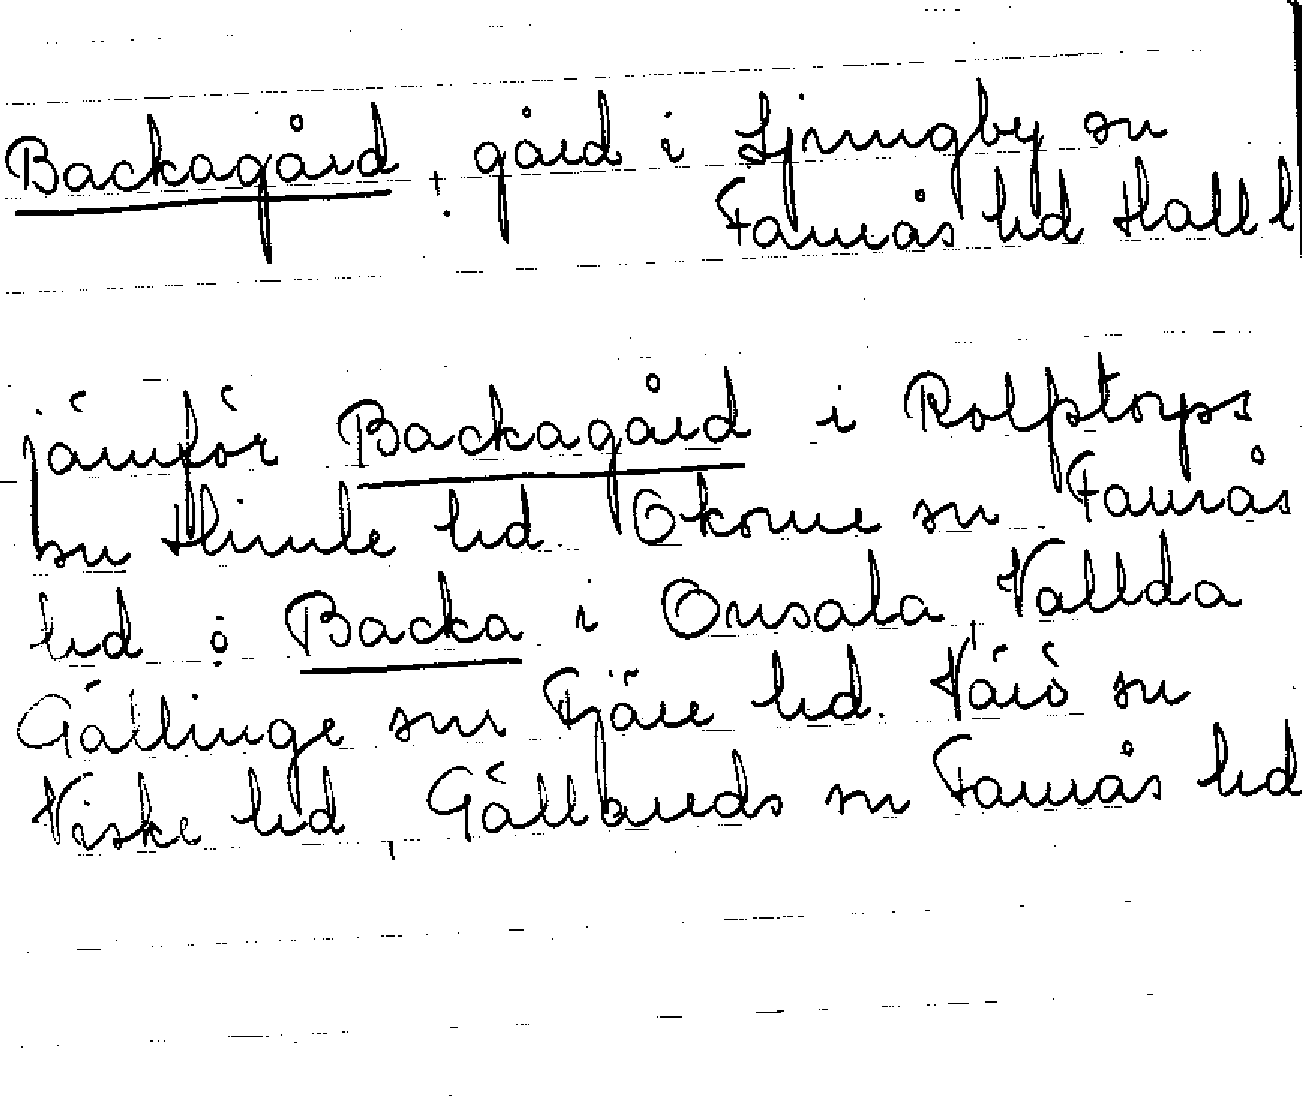 Backagård, gård i Ljungby sn
Faurås hd Hall l
jämför Backagård i Rolfstorps
sn Himle hd. Okome sn Faurås
hd; Backa i Onsala, Vallda
Gällinge snr Fjäre hd. Värö sn
Viske hd, Gällareds sn Faurås hd